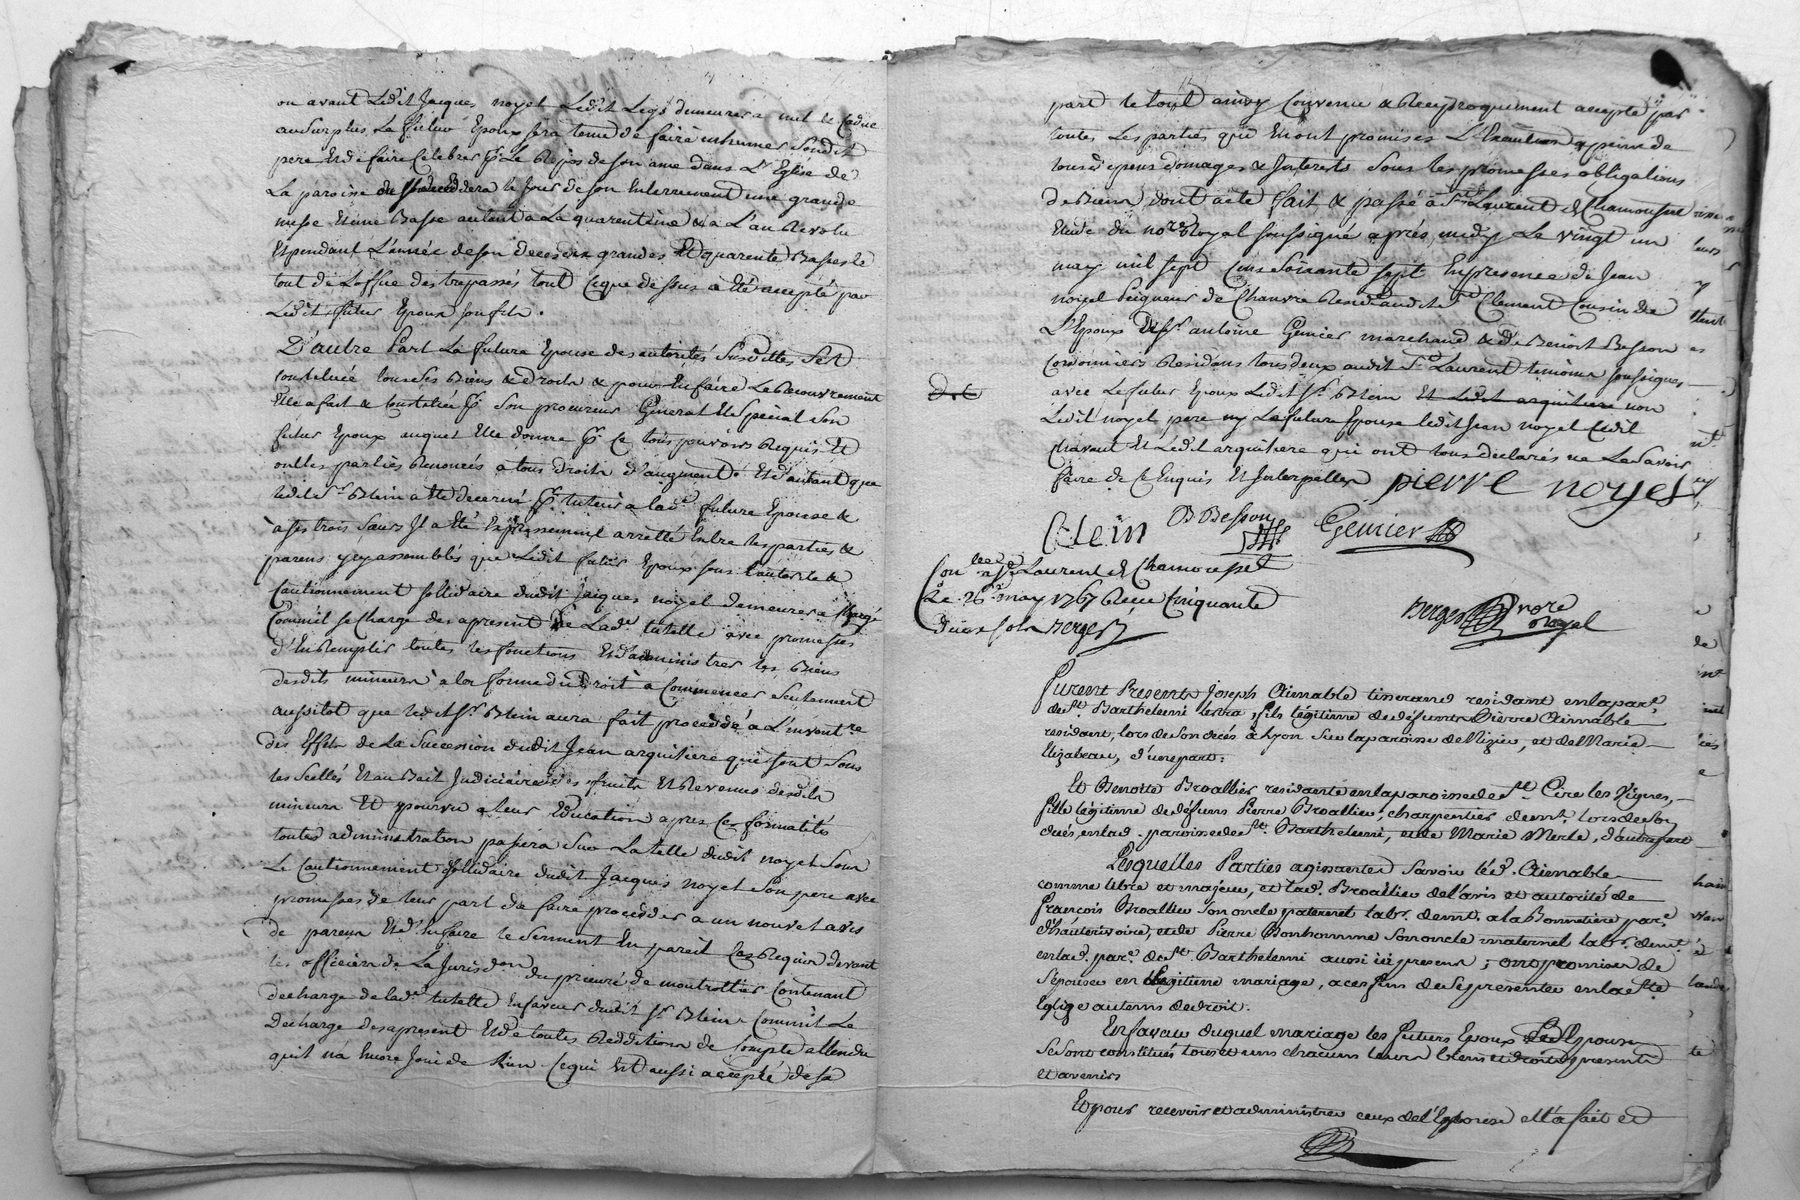 ou avant Ledit Jacques noyel Ledit Legs demeurera nul et Caduc
au surplus Le futur Epoux sera tenu de faire inhumer Sondit
pere Et de faire Celebrer pr. Le Repos de son ame dans L'Eglise de
La paroisse ou il decedera le Jour de son Enterrement une grande
messe Et une Basse autant a La quarentaine & a L'an Revolu
Et pendant L'année de son deces dix grandes Et quarente Basses le
tout de L'office des trepassés tout Ce que dessus a Eté accepté par
Ledit futur Epoux son fils.
D'autre Part La future Epouse des autorités Susdittes, S'est
constituée tous ses Biens & Droits & pour En faire Le Recouvrement
Elle a fait & Constitué pr. Son procureur General Et Special Son
futur Epoux auquel Elle donne pr. Ce tous pouvoirs Requis Et
ont les parties Renoncés a tous Droits d'augment. Et d'autant que
ledit Sr. Blein a Eté decerné pr. tuteur a lad. future Epouse &
a ses trois Sœurs Il a Eté Expressement arretté Entre les parties &
parens y assemblés que Ledit futur Epoux sous l'autorité &
Cautionnement sollidaire dudit Jacques noyel demeurera Chargé
Comme il se Charge des apresent de Lade. tutelle avec promesses
d'En Remplir toutes les fonctions Et d'administrer les Biens
desdits mineurs a la forme du Droit a Commencer Seulement
aussitot que ledit Sr. Blein aura fait procedé a L'invent.re
des Effets de La Succession dudit Jean arquitiere qui sont Sous
les Scellés Et au Bail Judiciaire des fruits Et Revenus desdits
mineurs Et pourvu a leur Education apres Ces formalités
toutes administration passera Sur La telle dudit noyel Sous
Le Cautionnement Sollidaire dudit Jacques noyel Son pere avec
promesses de leur part de faire proceder a un nouvel avis
de parens Et d'En faire le Serment En pareil Cas Requis devant
les officiers de La Jurisd.on du prieuré de montrottier Contenant
decharge de lade. tutelle En faveur dudit Sr. Blein Comm'il Le
decharge des apresent Et de toutes Redditions de Compte attendu
quil n'a Encore Joui de Rien Ce qui Est aussi accepté de sa
part le tout ainsy Convenu & Reciproquement accepté par
toutes Les parties qui En ont promises L'Execution a peine de
tous depens domages & Interets Sous les promesses obligations
de Biens dont acte fait & passé a St. Laurent de Chamousset
Etude du no.re Royal soussigné après midy Le vingt un
may mil sept Cens Soixante Sept En presence de Jean
noyel Peigneur de Chanvre Resid. audit St. Clement Cousin de
L'Epoux de Sr. antoine Genier marchand & de Benoit Besson
Cordonniers Residans tous deux audit St. Laurent temoins soussignes
avec Le futur Epoux Ledit Sr. Blein Et Ledit arquitiere non
Ledit noyel pere ny La future Epouse ledit Jean noyel Ledit
Chavant Et Ledit arquitiere qui ont tous declarés ne Le Savoir
faire de Ce Enquis Et Interpellés pierre noyel
Blein B Besson Genier
Con.lee a St. Laurent de Chamousset
Le 26 may 1767 Reçu Cinquante
deux sols Berger
Berger no.re royal
Furent Presents Joseph Aimable tisserand residant en la par.e
de St. Barthelemi lestra, fils légitime de défunts Pierre Aimable
residant, lors de son decés à Lyon Sur la paroisse de Nizier, et de Marie
Elizabeau, d'une part:
Et Benoite Broallier residante en la paroisse de St. Cire les Vignes,
fille légitime de défuns Pierre Broallier, charpentier dem.t, lors de son
decés, en lad. paroisse de St. Barthelemi, et de Marie Merle, d'autre part
Lesquelles Parties agissantes Savoir led. Aimable
comme libre et majeur, et lad. Broallier de l'avis et autorité de
François Broallier Son oncle paternel lab.r demt. a la Bonnetiere par.e
d'hauterivoire, et de Pierre Bonhomme Son oncle maternel lab.r demt.
en lad. par.e de St. Barthelemi aussi ici presens; ont promises de
S'epouser en légitime mariage, a ces fins de Se presenter en la Ste.
Eglise au tems de droit.
En faveur duquel mariage les futurs Epoux Et Epouse
Se sont constitués tous et uns chacuns leurs biens et droits presents
et avenirs
Et pour recevoir et administrer ceux de l'Epouse ell'a fait et